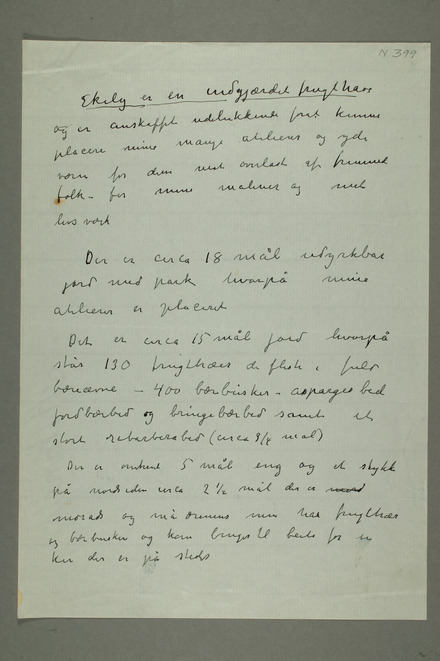 N 399
Ekely er en indgjærdet frugthave
og er anskaffet udelukkende forat kunne
placere mine mange atelierer og yde
værn for dem mod overlast af fremmed
folk – for mine malerier og mit
livsværk
Der er circa 18 mål udyrkbar
jord med park hvorpå mine
atelierer er placeret
Det er circa 15 mål jord hvorpå
står 130 frugttrær de fleste i fuld
bæreevne – 400 bærbusker – aspargesbed
jordbærbed og bringebærbed samt et
stort rabarbrabed (circa 3/4 mål)
Der er omtrent 5 mål eng og et stykke
på nordsiden circa 2 1/2 mål der er
morads og må dræneres men har frugttrær
og bærbusker og kan bruges til beite for en
ku der er på stedet